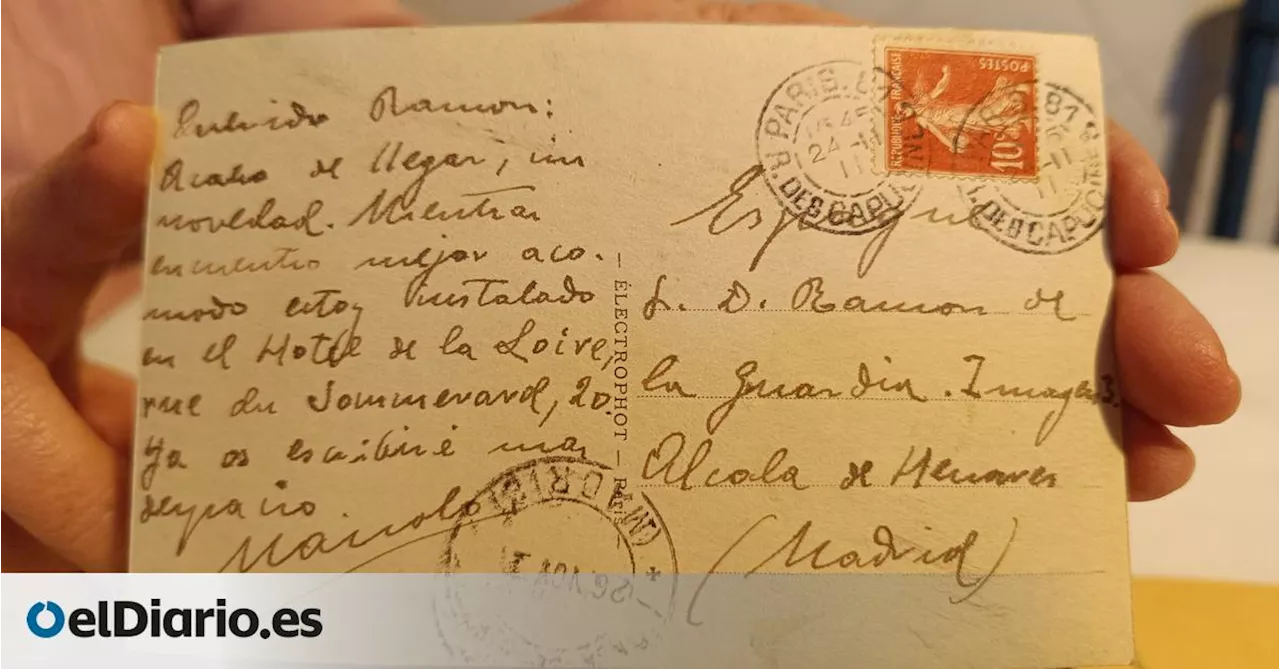 Querido Ramon:
Acabo de llegar, sin
novedad. Mientras
encuentro mejor aco-
modo estoy instalado
en el Hotel de la Loire,
rue du Sommerard, 20.
Ya os escribiré mas
despacio.
Manolo
— ÉLECTROPHOT — Paris
RÉPUBLIQUE FRANÇAISE
POSTES
10c
PARIS.
24 -11
11
R. DES CAPUCINES
R. DES CAPUCINES
Espagne
S. D. Ramon de
la Guardia. Imagen 3.
Alcala de Henares
(Madrid)
(MADRID)
26 NOV 11
elDiario.es